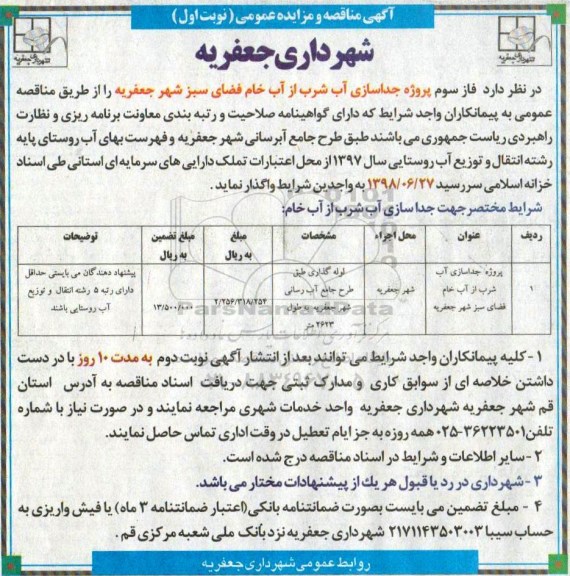 آگهی مناقصه و مزایده عمومی (نوبت اول)
شهرداری جعفریه
در نظر دارد فاز سوم پروژه جداسازی آب شرب از آب خام فضای سبز شهر جعفریه را از طریق مناقصه
عمومی به پیمانکاران واجد شرایط که دارای گواهینامه صلاحیت و رتبه بندی معاونت برنامه ریزی و نظارت
راهبردی ریاست جمهوری می باشند طبق طرح جامع آبرسانی شهر جعفریه و فهرست بهای آب روستای پایه
رشته انتقال و توزیع آب روستایی سال ۱۳۹۷ از محل اعتبارات تملک دارایی های سرمایه ای استانی طی اسناد
خزانه اسلامی سررسید ۱۳۹۸/۰۶/۲۷ به واجدین شرایط واگذار نماید.
شرایط مختصر جهت جداسازی آب شرب از آب خام:
ردیف عنوان محل اجراء مشخصات مبلغ به ریال مبلغ تضمین به ریال توضیحات
۱ پروژه جداسازی آب شرب از آب خام فضای سبز شهر جعفریه شهر جعفریه لوله گذاری طبق طرح جامع آب رسانی شهر جعفریه به طول ۲۶۲۳ متر ۲/۲۵۶/۳۱۸/۲۵۴ ۱۳/۵۰۰/۰۰۰ پیشنهاد دهندگان می بایستی حداقل دارای رتبه ۵ رشته انتقال و توزیع آب روستایی باشند
ParsNamadData
۱ - کلیه پیمانکاران واجد شرایط می توانند بعد از انتشار آگهی نوبت دوم به مدت ۱۰ روز با در دست
داشتن خلاصه ای از سوابق کاری و مدارک ثبتی جهت دریافت اسناد مناقصه به آدرس استان
قم شهر جعفریه شهرداری جعفریه واحد خدمات شهری مراجعه نمایند و در صورت نیاز با شماره
تلفن ۳۶۲۲۳۵۰۱-۰۲۵ همه روزه به جز ایام تعطیل در وقت اداری تماس حاصل نمایند.
۲ - سایر اطلاعات و شرایط در اسناد مناقصه درج شده است.
۳ - شهرداری در رد یا قبول هر یك از پیشنهادات مختار می باشد.
۴ - مبلغ تضمین می بایست بصورت ضمانتنامه بانکی (اعتبار ضمانتنامه ۳ ماه) یا فیش واریزی به
حساب سیبا ۲۱۷۱۱۴۳۵۰۳۰۰۳ شهرداری جعفریه نزد بانک ملی شعبه مرکزی قم.
روابط عمومی شهرداری جعفریه